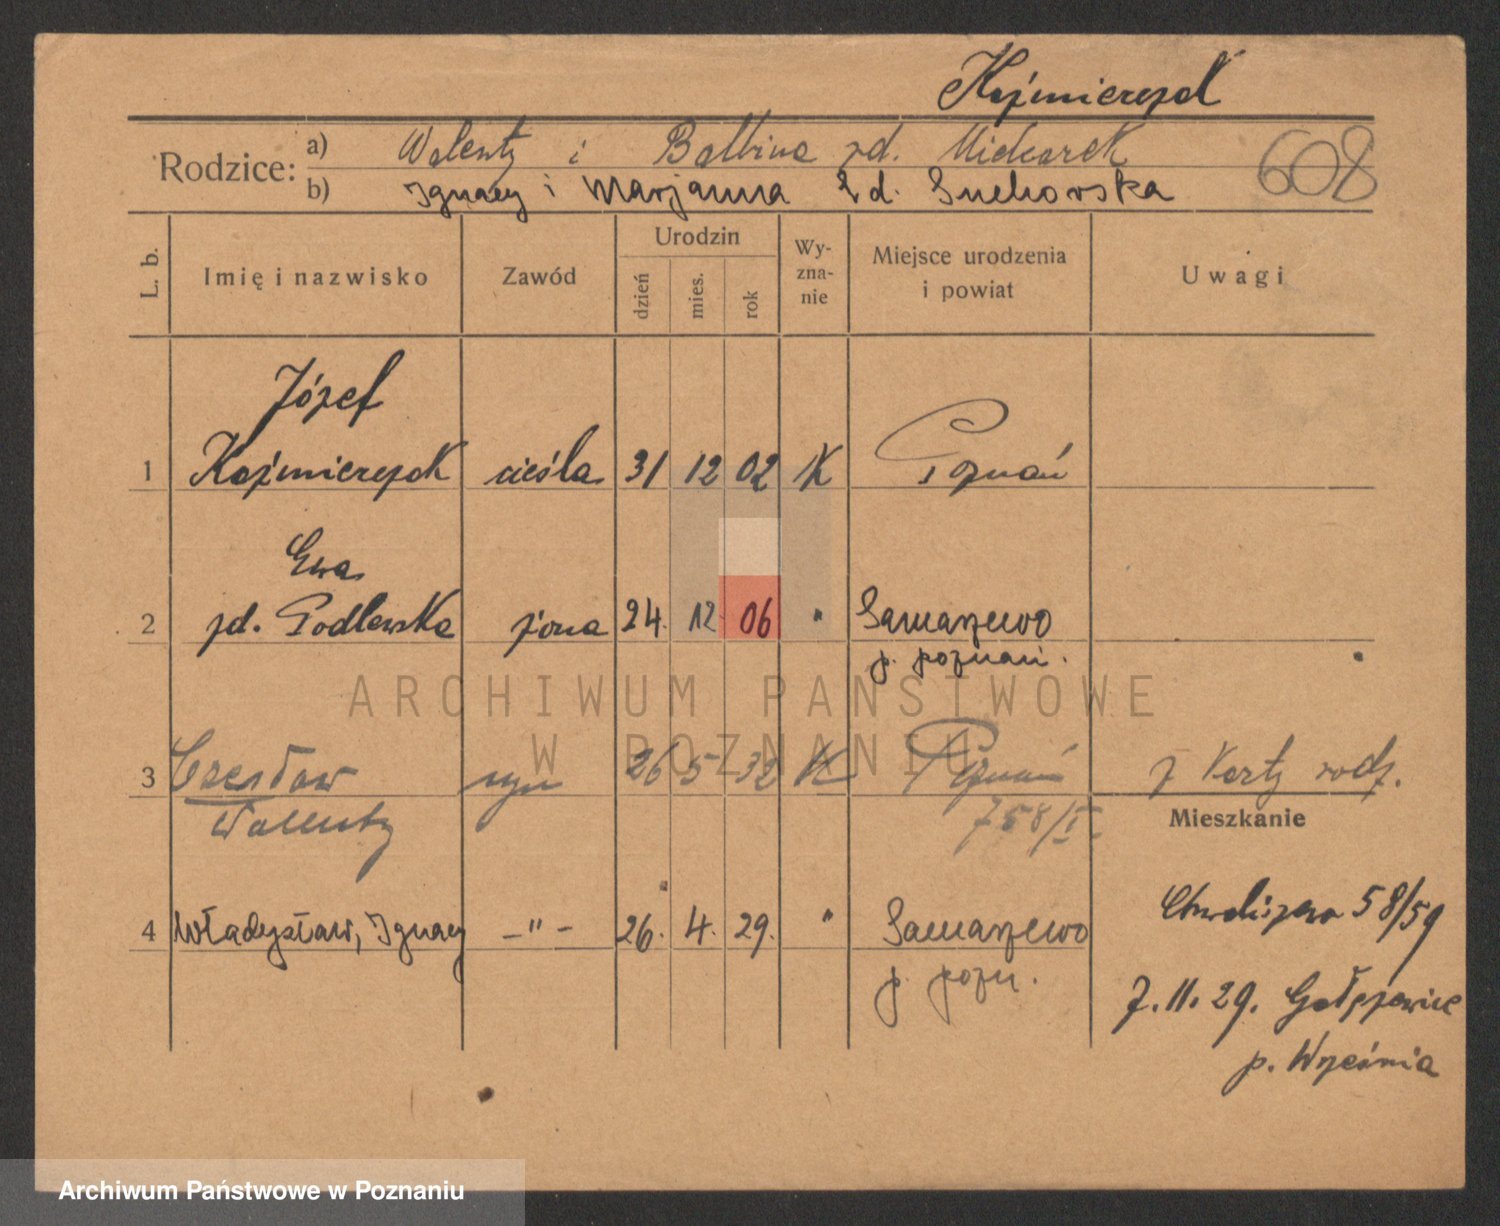 Kaźmierczak
Rodzice: a) Walenty i Balbina zd. Michorek
b) Ignacy i Marjanna zd. Suchorska
608
L. b.
Imię i nazwisko
Zawód
Urodzin
dzień
mies.
rok
Wy-
zna-
nie
Miejsce urodzenia
i powiat
Uwagi
Józef
1 Kaźmierczak cieśla 31 12 02 K Poznań
Ewa
2 zd. Podlewska żona 24. 12 06 "
p. poznań.
ARCHIWUM PAŃSTWOWE
W POZNANIU
3 Czesław syn 26 5 32 K Poznań z Karty rodz.
Walenty 758/I.
Mieszkanie
4 Władysław, Ignacy – " – 26. 4. 29. "
p. pozn.
Chwaliszewo 58/59
7. 11. 29.
p. Września
Archiwum Państwowe w Poznaniu